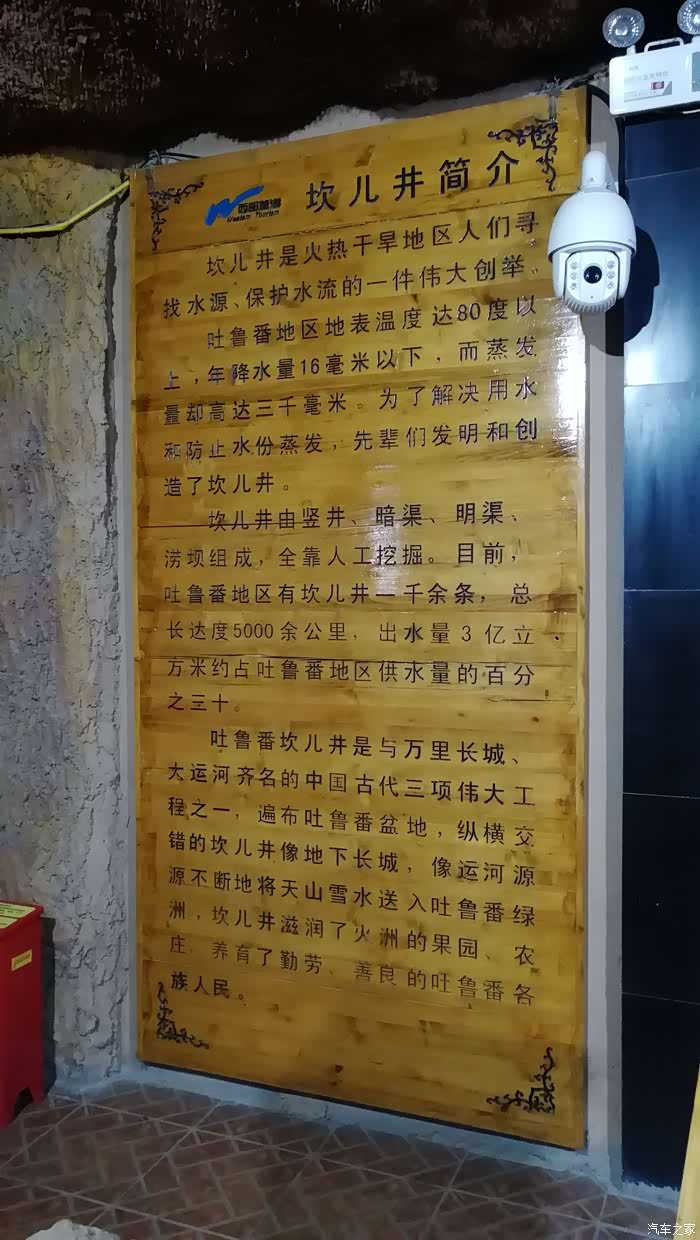 西部旅游
Western Tourism
坎儿井简介
坎儿井是火热干旱地区人们寻
找水源、保护水流的一件伟大创举。
吐鲁番地区地表温度达80度以
上，年降水量16毫米以下，而蒸发
量却高达三千毫米。为了解决用水
和防止水份蒸发，先辈们发明和创
造了坎儿井。
坎儿井由竖井、暗渠、明渠、
涝坝组成，全靠人工挖掘。目前，
吐鲁番地区有坎儿井一千余条，总
长达度5000余公里，出水量3亿立
方米约占吐鲁番地区供水量的百分
之三十。
吐鲁番坎儿井是与万里长城、
大运河齐名的中国古代三项伟大工
程之一，遍布吐鲁番盆地，纵横交
错的坎儿井像地下长城，像运河源
源不断地将天山雪水送入吐鲁番绿
洲，坎儿井滋润了火洲的果园、农
庄，养育了勤劳、善良的吐鲁番各
族人民。
汽车之家